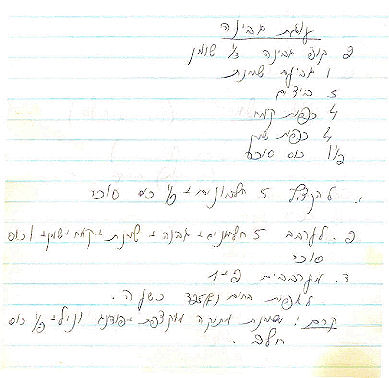 עוגת גבינה
2 קופ' גבינה 5% שומן
1 גביע שמנת
5 ביצים
4 כפות קמח
4 כפות שמן
1½ כוס סוכר
להקציף 5 חלבונים + ½ כוס סוכר
ב. לערבב 5 חלמונים + גבינה + שמנת + קמח + שמן + 1 כוס
סוכר
ג. מערבבים
לאפות בחום כשעה.
קרם: שמנת מתוקה מוקצפת + פודינג וניל + ½ כוס
חלב.